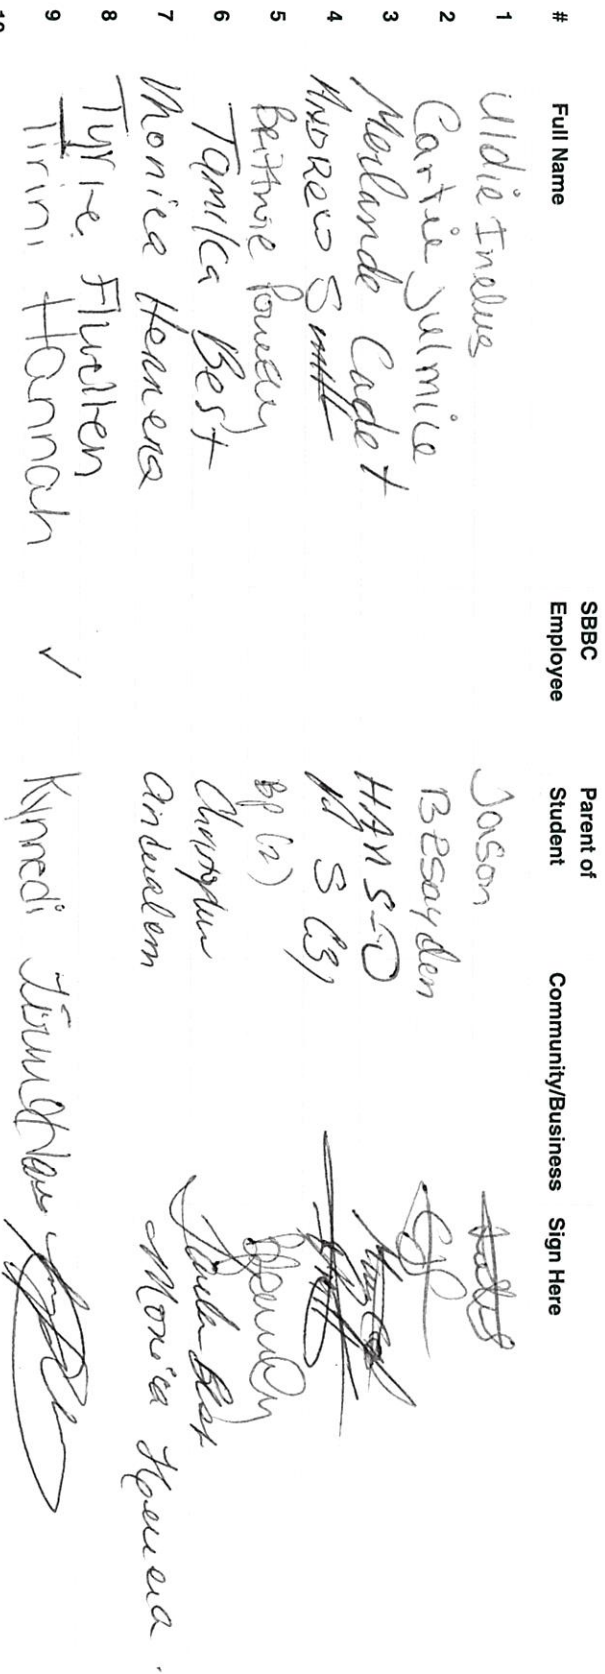 # Full Name SBBC Employee Parent of Student Community/Business Sign Here
1 Uldie Inelus Jason
2 Cartie Julmice Besayden
3 Merlande Cadet HANS-D
4 ANDREW Smith S (3)
5 Brittnie BP (2)
6 Tamika Best
7 Monica Herrera Andualem Monica Herrera
8 Tyrie Fluellen
9 Tirini Hannah ✓ Kynnedi
10